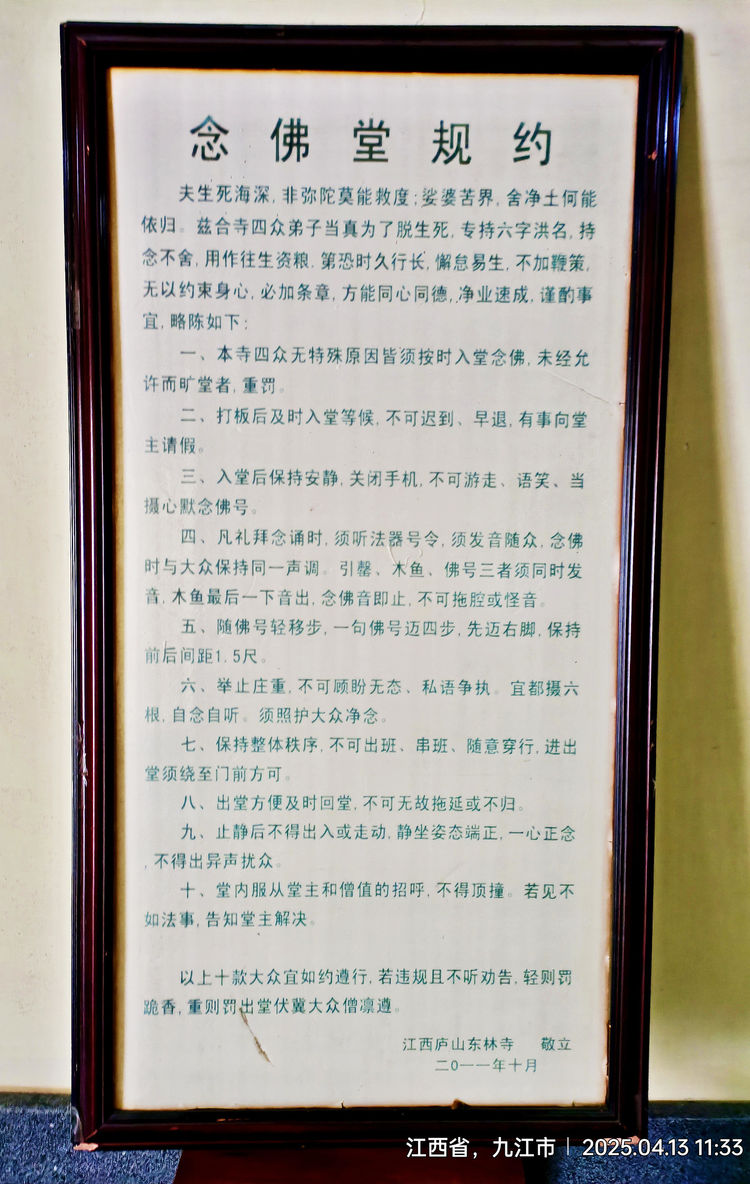 念佛堂规约
夫生死海深,非弥陀莫能救度;娑婆苦界,舍净土何能
依归。兹合寺四众弟子当真为了脱生死,专持六字洪名,持
念不舍,用作往生资粮.第恐时久行长,懈怠易生,不加鞭策,
无以约束身心,必加条章,方能同心同德,净业速成,谨酌事
宜,略陈如下:
一、本寺四众无特殊原因皆须按时入堂念佛,未经允
许而旷堂者,重罚。
二、打板后及时入堂等候,不可迟到、早退,有事向堂
主请假。
三、入堂后保持安静,关闭手机,不可游走、语笑、当
摄心默念佛号。
四、凡礼拜念诵时,须听法器号令,须发音随众,念佛
时与大众保持同一声调。引罄、木鱼、佛号三者须同时发
音,木鱼最后一下音出,念佛音即止,不可拖腔或怪音。
五、随佛号轻移步,一句佛号迈四步,先迈右脚,保持
前后间距1.5尺。
六、举止庄重,不可顾盼无态、私语争执。宜都摄六
根,自念自听。须照护大众净念。
七、保持整体秩序,不可出班、串班、随意穿行,进出
堂须绕至门前方可。
八、出堂方便及时回堂,不可无故拖延或不归。
九、止静后不得出入或走动,静坐姿态端正,一心正念
,不得出异声扰众。
十、堂内服从堂主和僧值的招呼,不得顶撞。若见不
如法事,告知堂主解决。
以上十款大众宜如约遵行,若违规且不听劝告,轻则罚
跪香,重则罚出堂伏冀大众僧凛遵。
江西庐山东林寺 敬立
二0一一年十月
江西省，九江市 | 2025.04.13 11:33